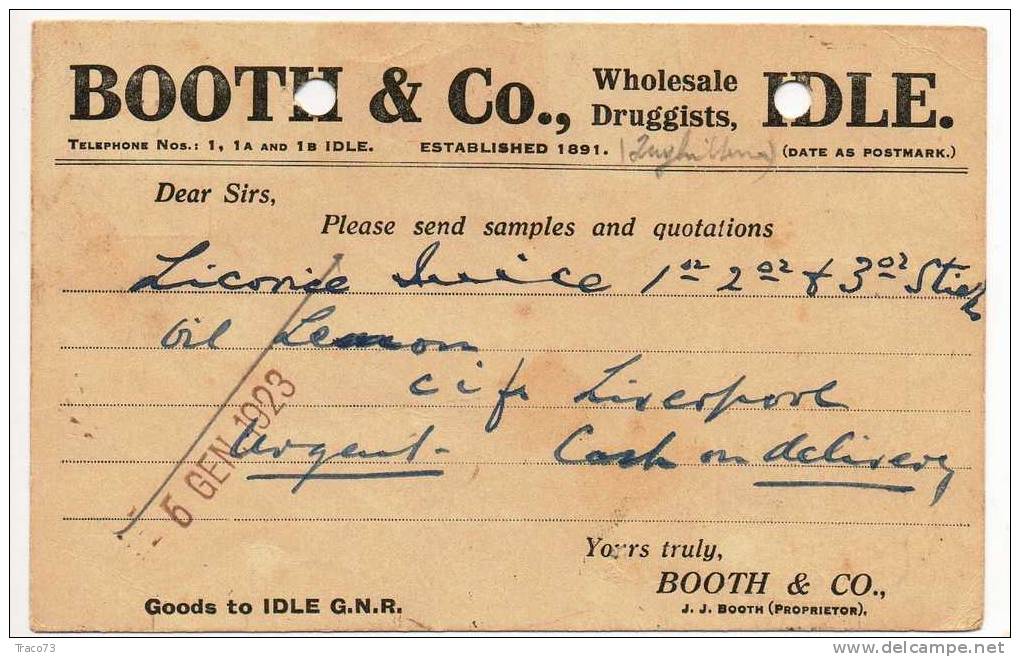 BOOTH & Co., Wholesale Druggists, IDLE.
TELEPHONE NOS.: 1, 1A AND 1B IDLE. ESTABLISHED 1891. (DATE AS POSTMARK.)
Dear Sirs,
Please send samples and quotations
Licorice Juice 1oz 2oz & 3oz Sticks
Oil Lemon
c i f Liverpool
Urgent - Cash on delivery
5 GEN 1923
Yours truly,
BOOTH & CO.,
J. J. BOOTH (PROPRIETOR).
Goods to IDLE G.N.R.
Traco73
delcampe.net